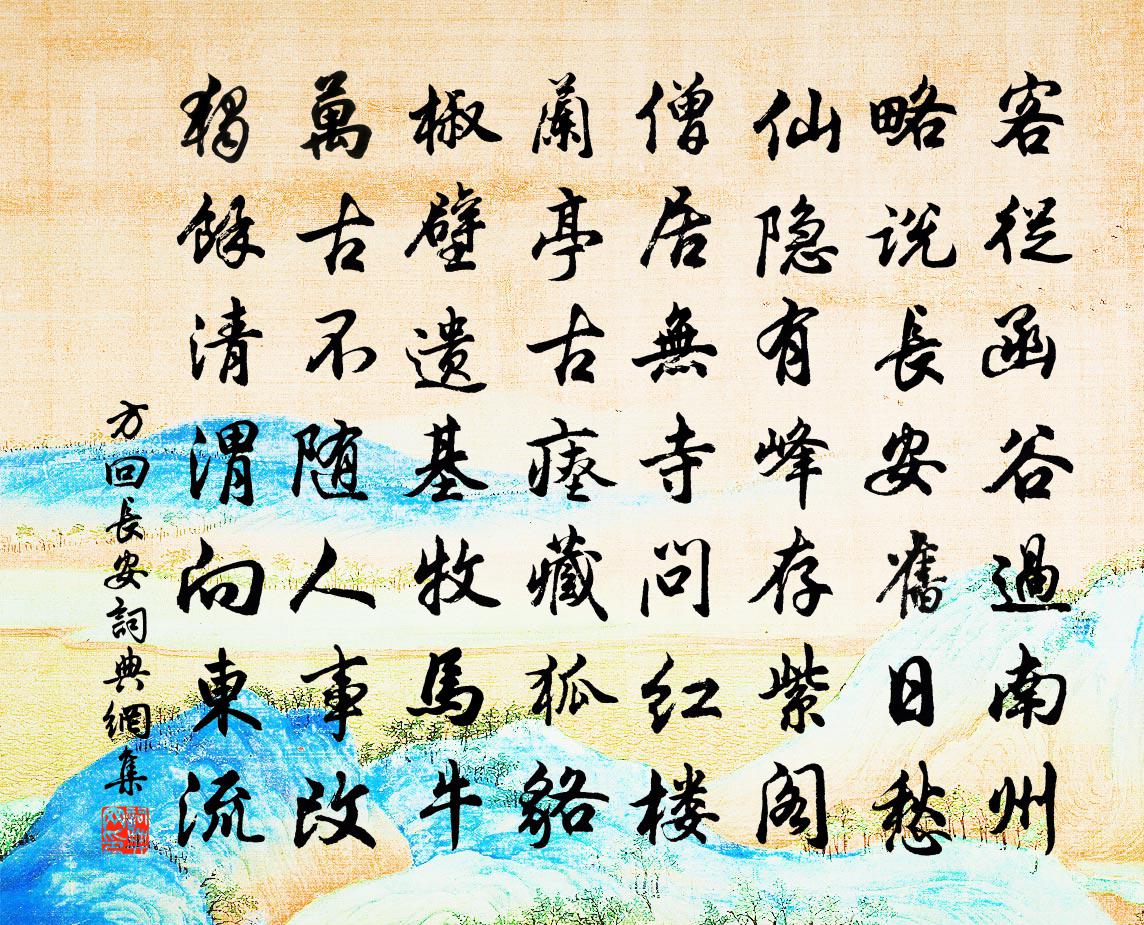 客從函谷過南州
略說長安舊日愁
仙隐有峰存紫阁
僧居無寺問红楼
蘭亭古瘗藏狐貉
椒壁遗基牧馬牛
萬古不随人事改
獨餘清渭向東流
方回長安詞典網集